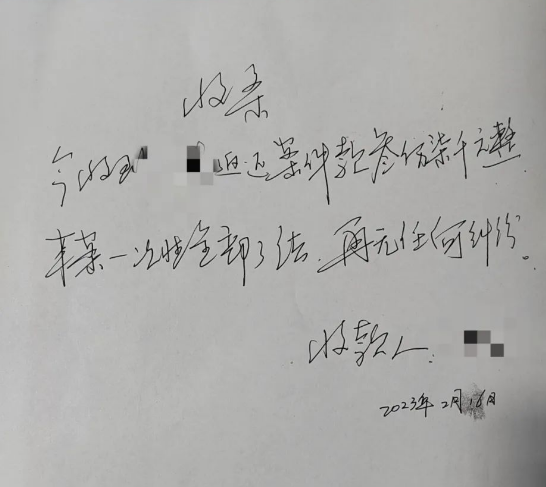 收条
今收到 退还案件款叁仟柒千元整
本案一次性全部了结，再无任何纠纷。
收款人：
2023年2月16日